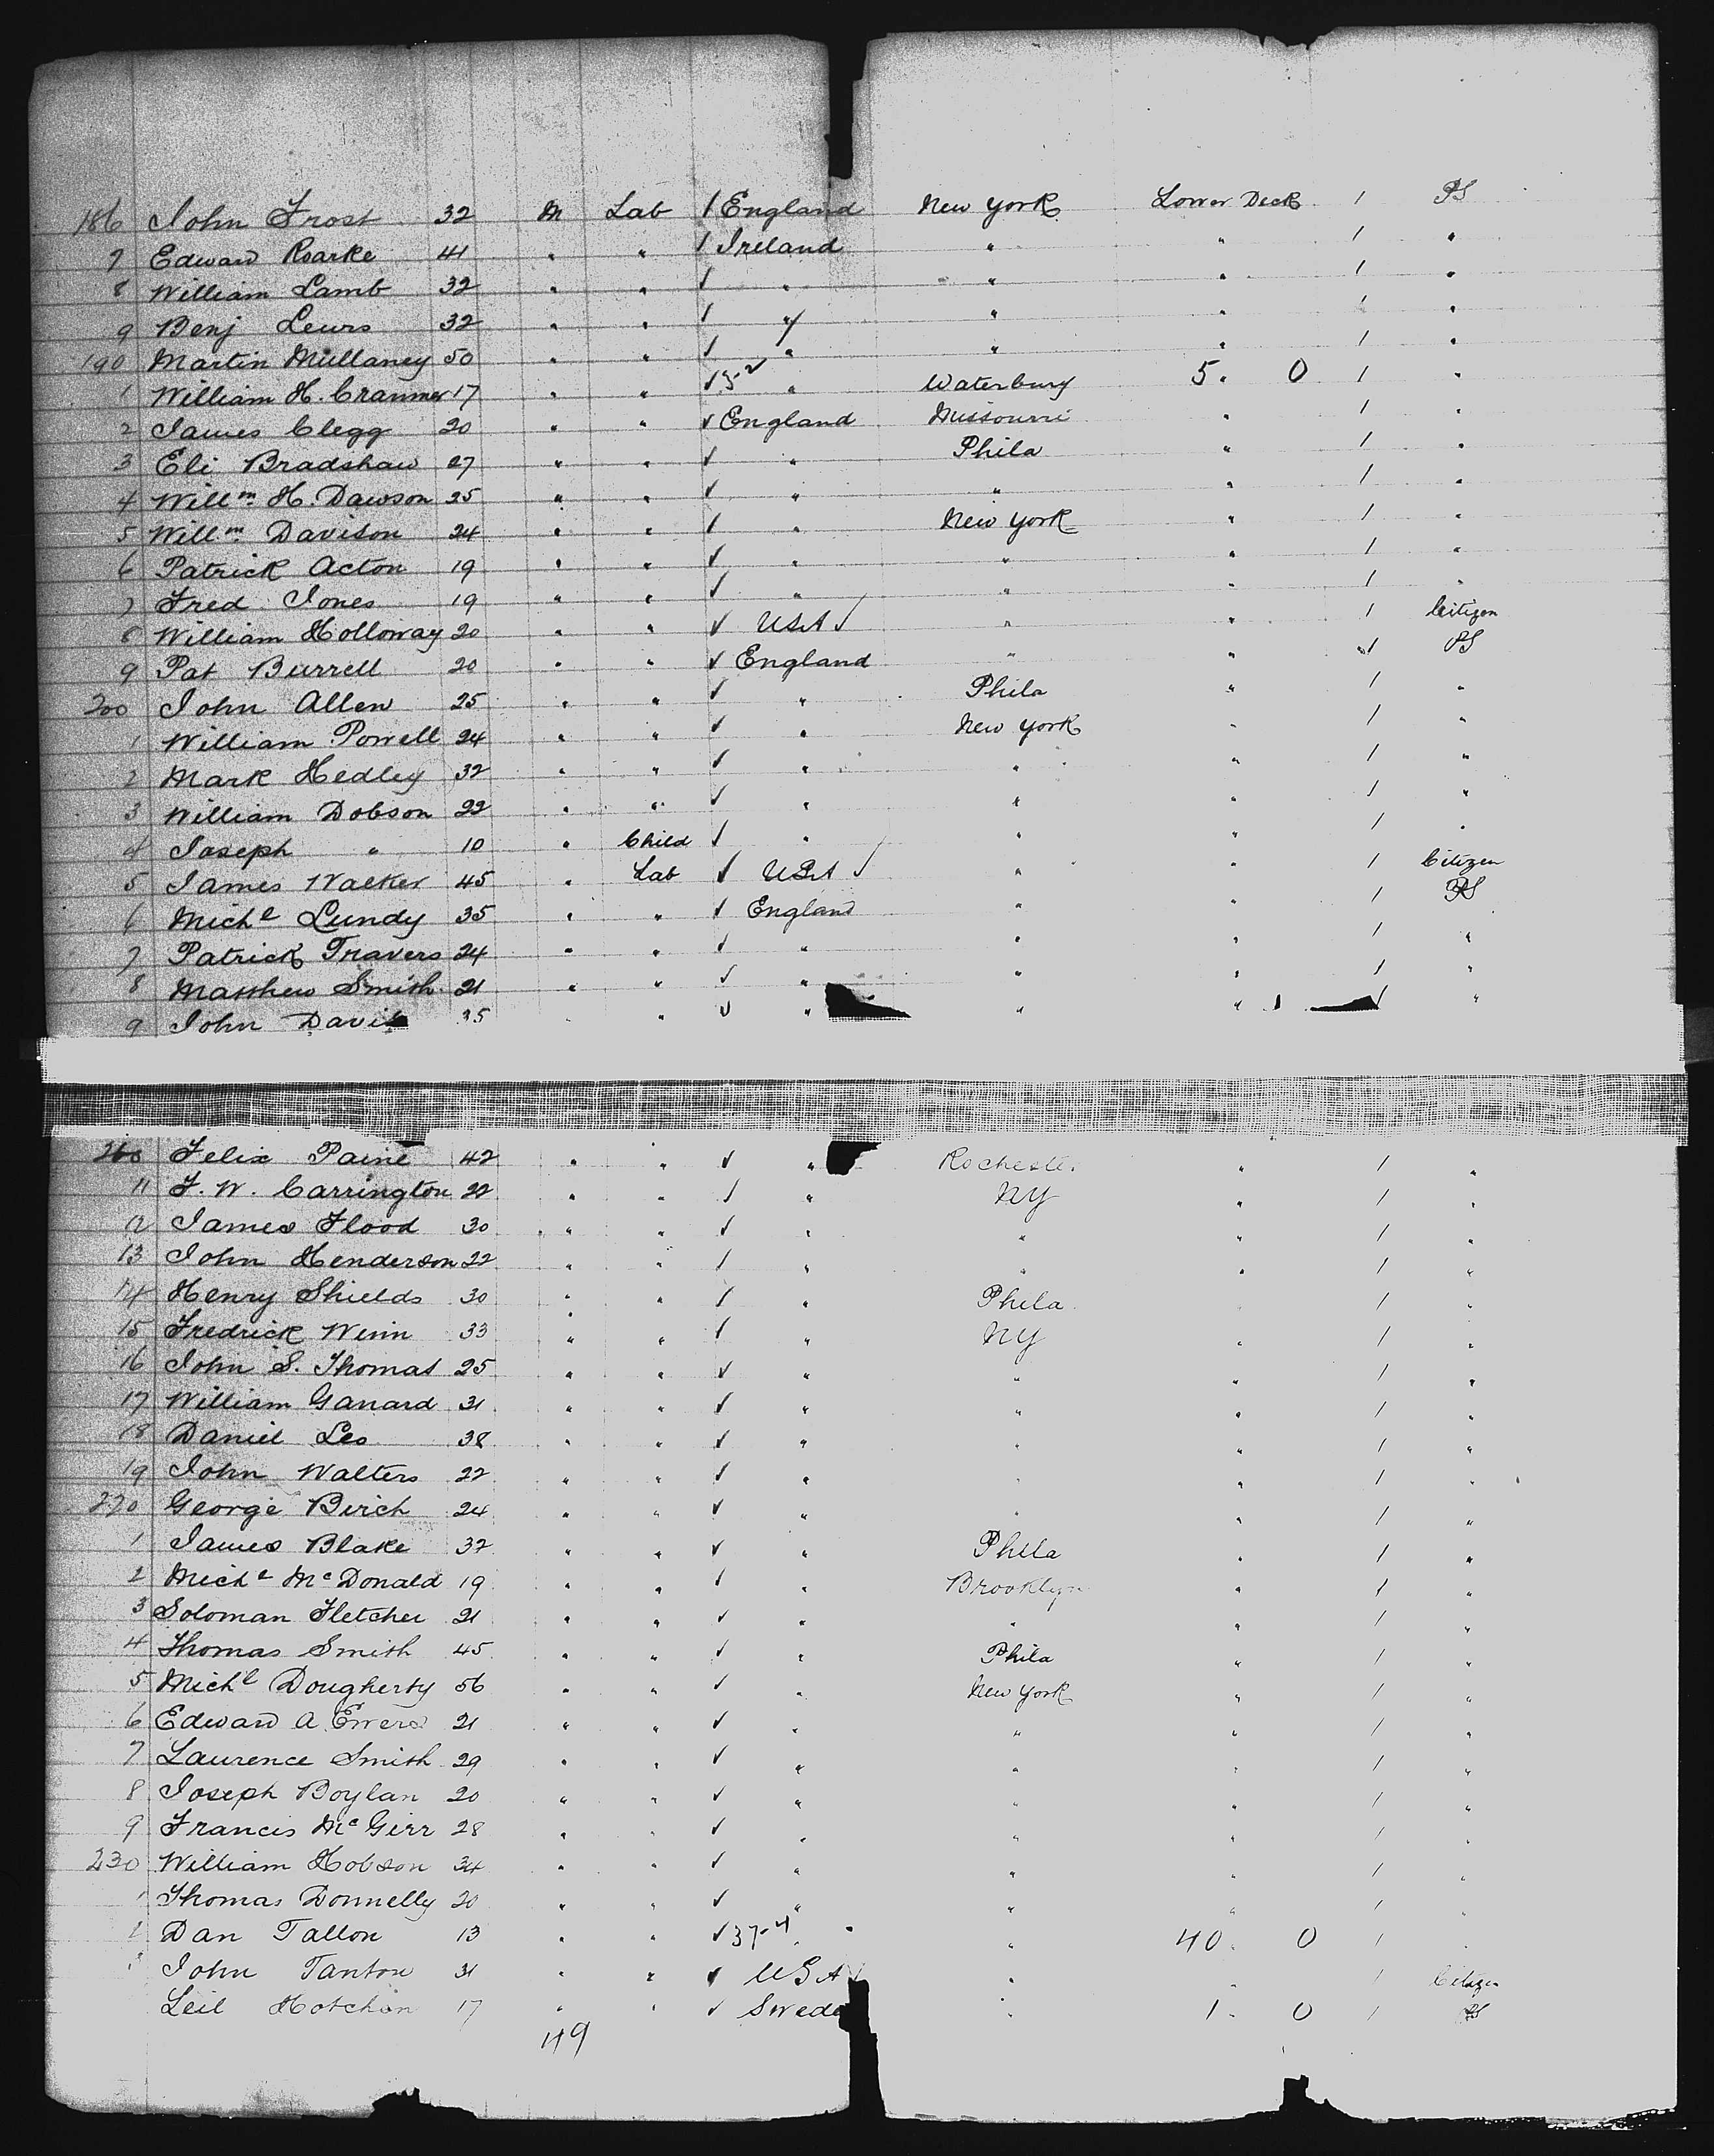 186 John Frost 32 M Lab / England New York Lower Deck / PS
7 Edward Roarke 41 " " / Ireland " " / "
8 William Lamb 32 " " / " " " / "
9 Benj Lewis 32 " " / " " " / "
190 Martin Mullaney 50 " " / " " " / "
1 William H. Cranmer 17 " " ✓ 5-2 " Waterbury 5. 0 / "
2 James Clegg 20 " " ✓ England Missourri " / "
3 Eli Bradshaw 27 " " ✓ " Phila " / "
4 Willm H. Dawson 25 " " ✓ " " " / "
5 Willm Davison 24 " " / " New York " / "
6 Patrick Acton 19 " " ✓ " " " / "
7 Fred Jones 19 " " ✓ " " " / "
8 William Holloway 20 " " ✓ USA ✓ " " / Citizen
9 Pat Burrell 20 " " ✓ England " " / PS
200 John Allen 25 " " ✓ " Phila " / "
1 William Powell 24 " " ✓ " New York " / "
2 Mark Hedley 32 " " ✓ " " " / "
3 William Dobson 22 " " ✓ " " " / "
4 Joseph " 10 " Child / " " " / "
5 James Walker 45 " Lab ✓ USA ✓ " " / Citizen
6 Michl Lundy 35 " " ✓ England " " / PS
7 Patrick Travers 24 " " ✓ " " " / "
8 Matthew Smith 21 " " ✓ " " " / "
9 John Davis 35 " " ✓ " " " / "
Felix Paine 42 " " ✓ " Rochester " / "
11 F. W. Carrington 22 " " / " NY " / "
12 James Flood 30 " " ✓ " " " / "
13 John Henderson 22 " " / " " " / "
14 Henry Shields 30 " " / " Phila " / "
15 Fredrick Winn 33 " " / " NY " / "
16 John S. Thomas 25 " " ✓ " " " / "
17 William Ganard 31 " " ✓ " " " / "
18 Daniel Leo 38 " " ✓ " " " / "
19 John Walters 22 " " ✓ " " " / "
220 George Birch 24 " " ✓ " " " / "
1 James Blake 32 " " ✓ " Phila " / "
2 Michl McDonald 19 " " / " Brooklyn " / "
3 Soloman Fletcher 21 " " ✓ " " " / "
4 Thomas Smith 45 " " ✓ " Phila " / "
5 Michl Dougherty 56 " " ✓ " New York " / "
6 Edward A Ewers 21 " " ✓ " " " / "
7 Laurence Smith 29 " " ✓ " " " / "
8 Joseph Boylan 20 " " ✓ " " " / "
9 Francis McGirr 28 " " ✓ " " " / "
230 William Hobson 34 " " ✓ " " " / "
1 Thomas Donnelly 20 " " ✓ " " " / "
2 Dan Tallon 13 " " ✓ 37-4 " " 40. 0 / "
3 John Tanton 31 " " ✓ USA ✓ " " / Citizen
Leil Hotchin 17 " " ✓ Swede " 1. 0 / PS
49